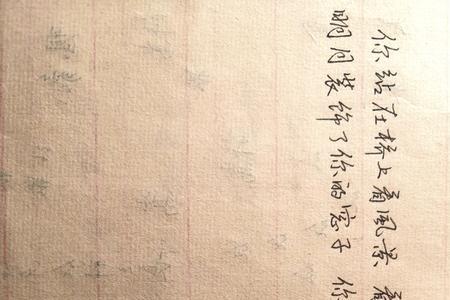 你站在桥上看風景 看
明月装饰了你的窗子 你